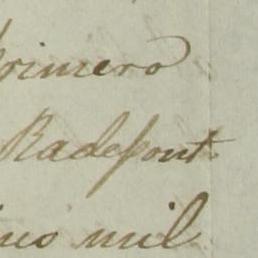 primero
Radepont
ino mil